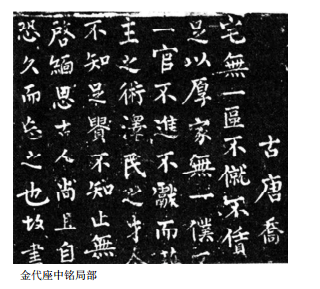 古唐喬
宅無一區不僦不賃
足以厚家無一僕
一官不進不戲而
主之術澤民之才
不知足貴不知止無
啓緬思古人尚且自
恐久而忘之也故書
金代座中铭局部